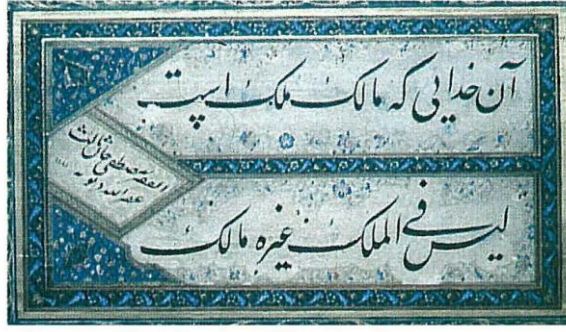 آن خدایی که مالک ملک است
لیس فی الملک غیره مالک
الفقیر مصطفی